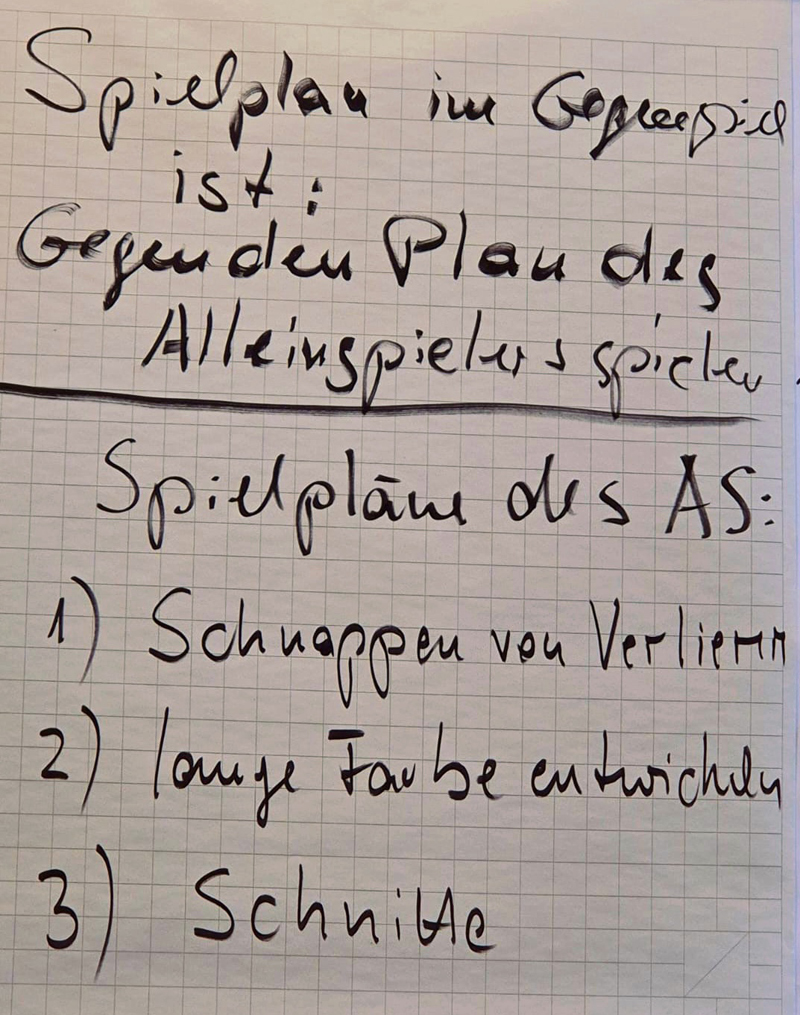 Spielplan im Gegenspiel
ist:
Gegen den Plan des
Alleinspielers spielen
Spielpläne des AS:
1) Schnappen von Verlierern
2) lange Farbe entwickeln
3) Schnitte